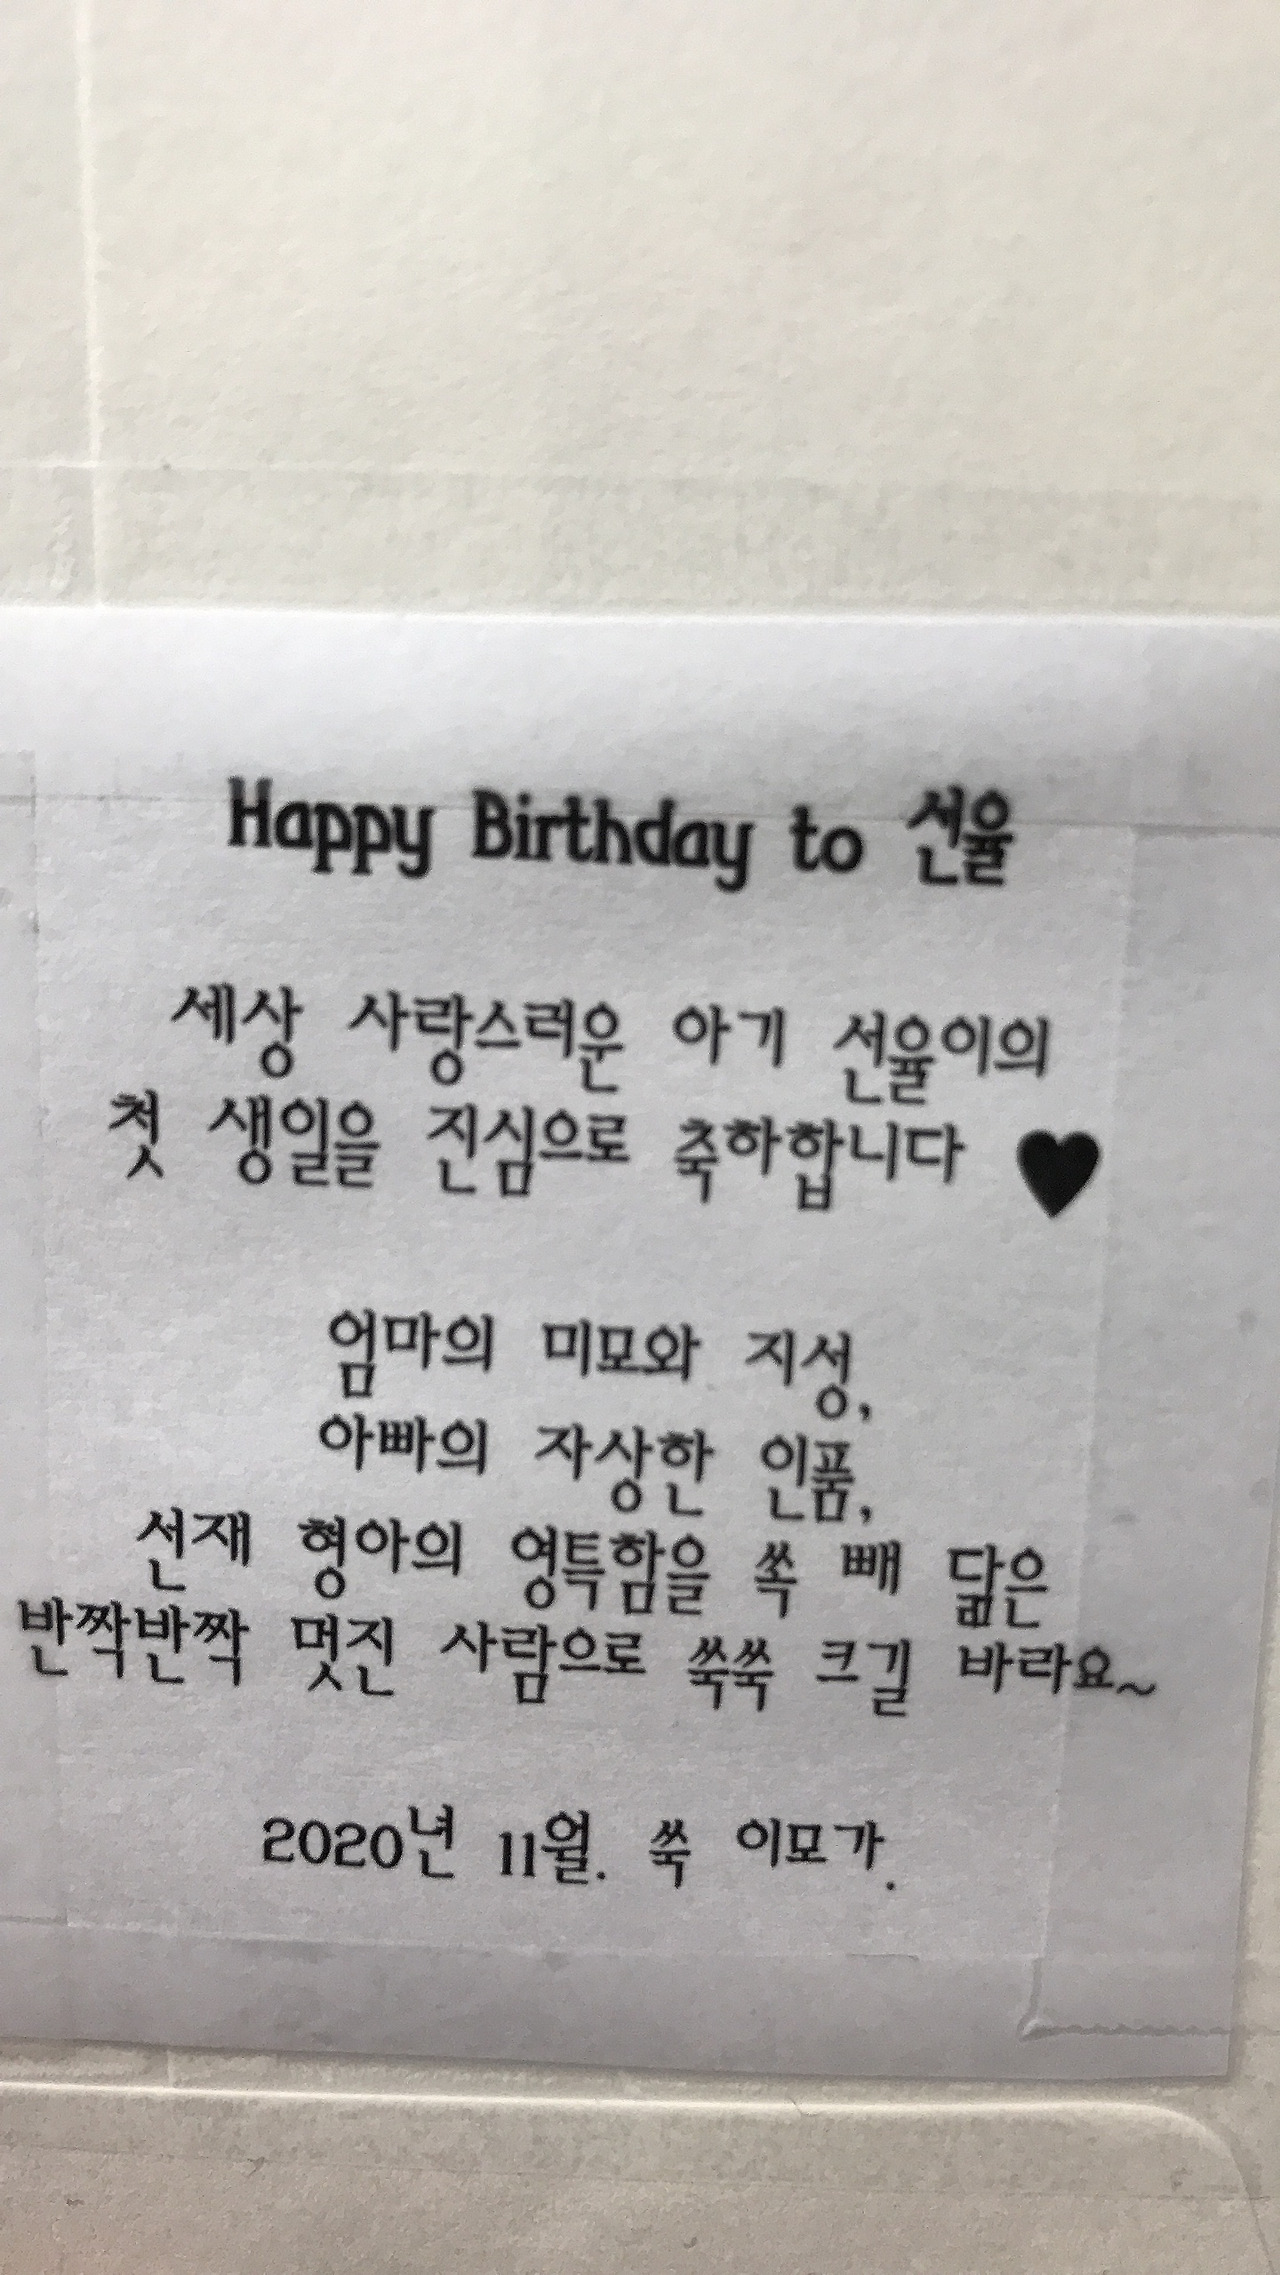 Happy Birthday to 선율
세상 사랑스러운 아기 선율이의
첫 생일을 진심으로 축하합니다 ♥
엄마의 미모와 지성,
아빠의 자상한 인품,
선재 형아의 영특함을 쏙 빼 닮은
반짝반짝 멋진 사람으로 쑥쑥 크길 바라요~
2020년 11월. 쑥 이모가.